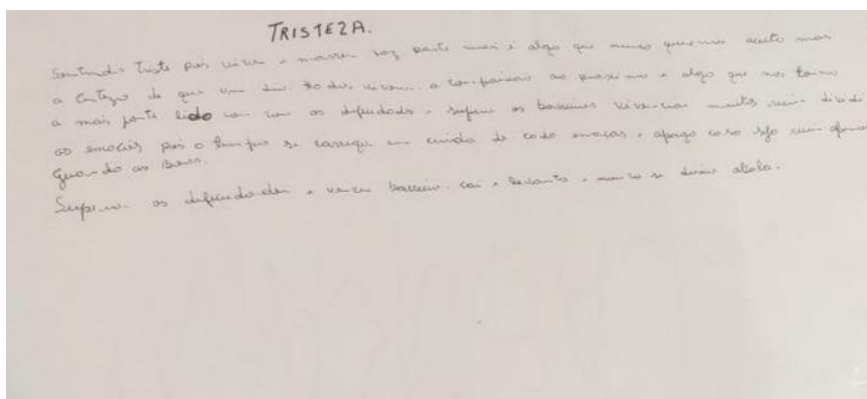 TRISTEZA.
Sentindo triste pois viver e morrer faz parte mais é algo que nunca queremos aceita mas
a certeza de que um dia todos vivem. a compaixão ao proximo e algo que nos torna
a mais forte lido com as dificuldade e supera as barreiras vivencias muitos ruim dividi
as emoções pois o tempo se carrega em cuida de cada emoção e apaga caso seja ruim
Guardo as Boas.
Supera as dificuldades e vence barreira. cai e levanta e nunca se deixa abala.